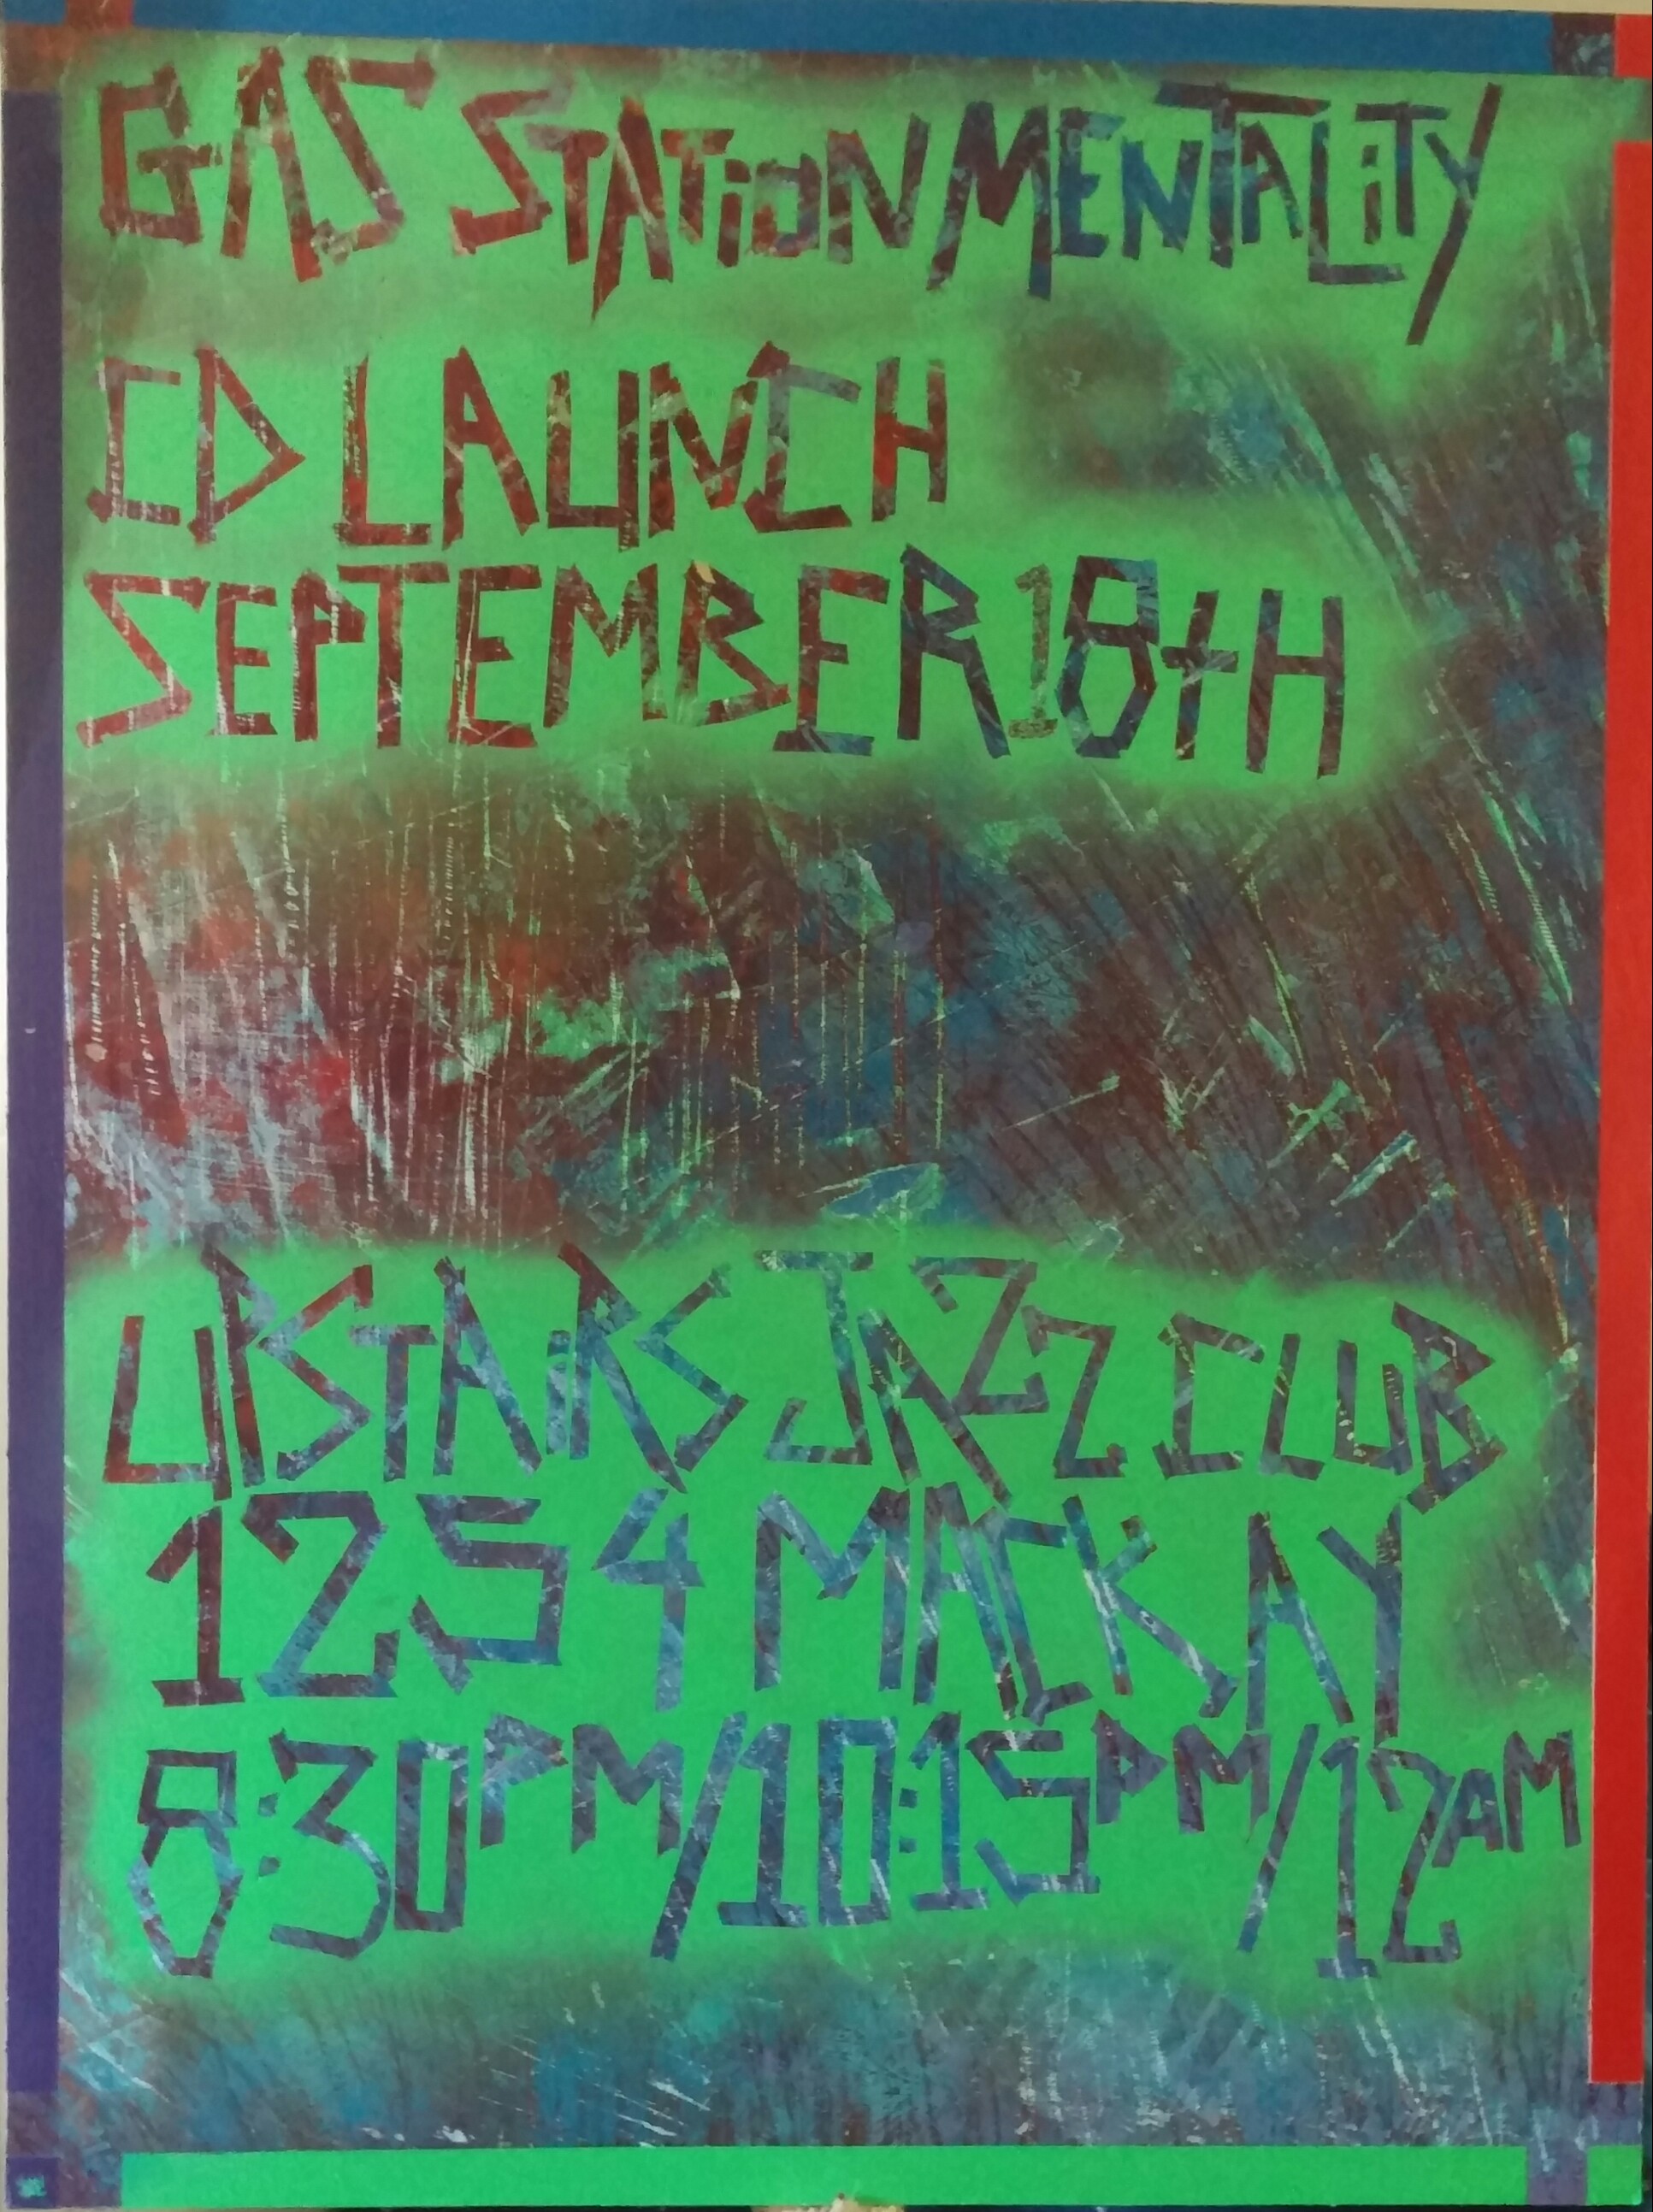 GAS STATiON MENTALiTY
CD LAUNCH
SEPTEMBER 18tH
UPSTAiRS JAZZ CLUB
1254 MACKAY
8:30PM/10:15PM/12AM